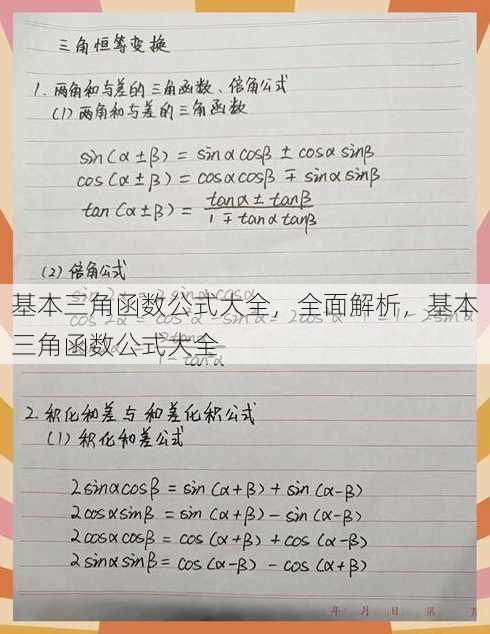 三角恒等变换
1. 两角和与差的三角函数、倍角公式
(1) 两角和与差的三角函数
sin(α±β) = sinαcosβ ± cosα sinβ
cos(α±β) = cosαcosβ ∓ sinαsinβ
tan(α±β) = (tanα ± tanβ) / (1 ∓ tanα tanβ)
(2) 倍角公式
基本三角函数公式大全，全面解析，基本
三角函数公式大全
2. 积化和差与和差化积公式
(1) 积化和差公式
2sinαcosβ = sin(α+β) + sin(α-β)
2cosαsinβ = sin(α+β) - sin(α-β)
2cosαcosβ = cos(α+β) + cos(α-β)
2sinαsinβ = cos(α-β) - cos(α+β)
年 月 日 第